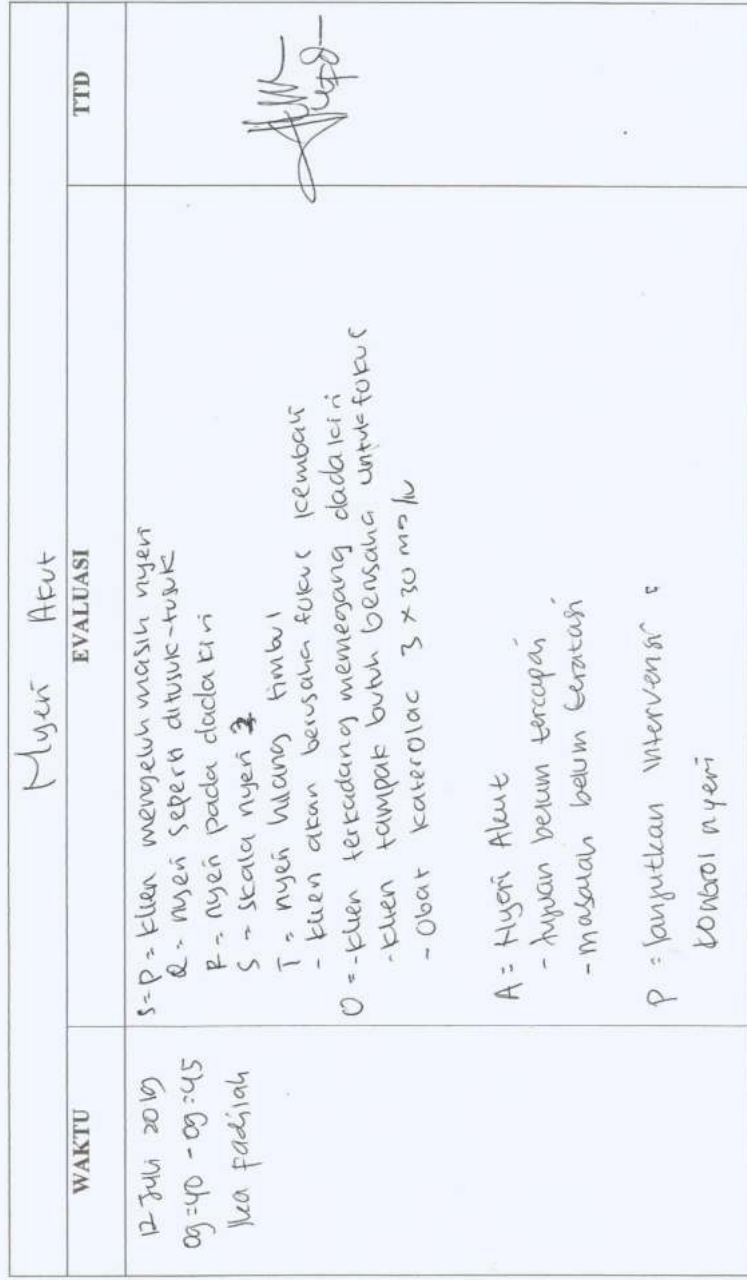 Nyeri Akut
WAKTU
EVALUASI
TTD
12 Juli 2019
09:40 - 09:45
Ika Fadjilah
S = P = Klien mengeluh masih nyeri
Q = nyeri seperti ditusuk-tusuk
R = nyeri pada dada kiri
S = skala nyeri
T = nyeri hilang timbul
- klien akan berusaha fokus kembali
O = - klien terkadang memegang dada kiri
- klien tampak butuh berusaha untuk fokus
- Obat Katerolac 3 x 30 mg/iv
A = Nyeri Akut
- tujuan belum tercapai
- masalah belum teratasi
P = lanjutkan intervensi :
Kontrol nyeri